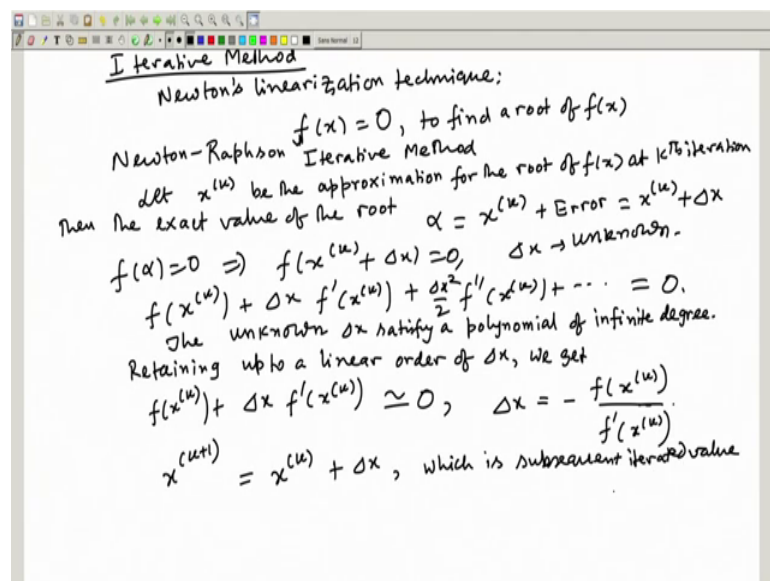 Sans Normal 12
Iterative Method
Newton's linearization technique:
f(x) = 0, to find a root of f(x)
Newton-Raphson Iterative Method
Let x^(k) be the approximation for the root of f(x) at kth iteration
Then the exact value of the root α = x^(k) + Error = x^(k) + Δx
f(α) = 0 ⇒ f(x^(k) + Δx) = 0, Δx → unknown.
f(x^(k)) + Δx f'(x^(k)) + Δx²/2 f''(x^(k)) + ⋯ = 0.
The unknown Δx satisfy a polynomial of infinite degree.
Retaining upto a linear order of Δx, we get
f(x^(k)) + Δx f'(x^(k)) ≃ 0, Δx = - f(x^(k))/f'(x^(k)).
x^(k+1) = x^(k) + Δx, which is subsequent iterated value